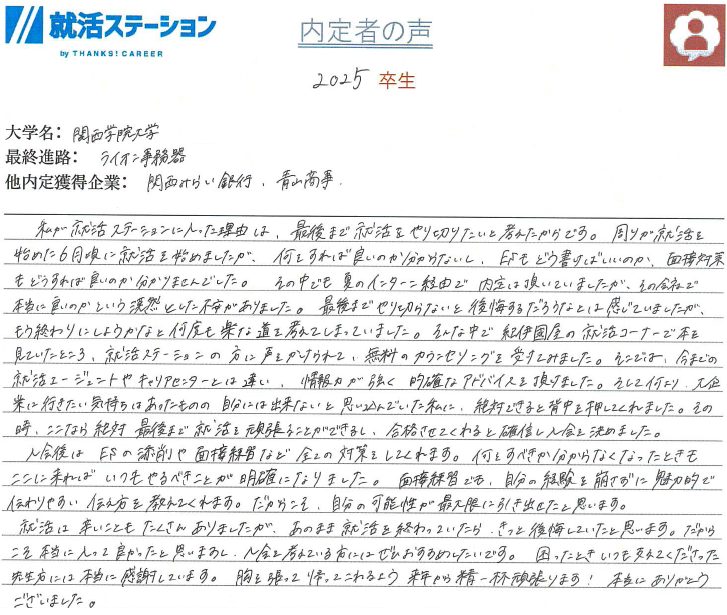 就活ステーション
by THANKS! CAREER
内定者の声
2025 卒生
大学名: 関西学院大学
最終進路: ライオン事務器
他内定獲得企業: 関西みらい銀行、青山商事.
私が就活ステーションに入った理由は、最後まで就活をやり切りたいと考えたからです。周りが就活を
始めた6月頃に就活を始めましたが、何をすれば良いのか分からないし、ESもどう書けばいいのか、面接対策
もどうすれば良いのか分かりませんでした。その中でも夏のインターン経由で内定は頂いていましたが、その会社で
本当に良いのかという漠然とした不安がありました。最後までやり切らないと後悔するだろうなとは感じていましたが、
もう終わりにしようかなと何度も楽な道を考えてしまっていました。そんな中で紀伊國屋の就活コーナーで本を
見ていたところ、就活ステーションの方に声をかけられて、無料のカウンセリングを受けてみました。そこでは、今までの
就活エージェントやキャリアセンターとは違い、情報力が強く的確なアドバイスを頂けました。そして何より、大企
業に行きたい気持ちはあったものの自分には出来ないと思い込んでいた私に、絶対できると背中を押してくれました。その
時、ここなら絶対最後まで就活を頑張ることができるし、合格させてくれると確信し入会を決めました。
入会後はESの添削や面接練習など全ての対策をしてくれます。何をすべきか分からなくなったときも
ここに来ればいつもやるべきことが明確になりました。面接練習でも、自分の経験を崩さずに魅力的で
伝わりやすい伝え方を教えてくれます。だからこそ、自分の可能性が最大限に引き出せたと思います。
就活は辛いこともたくさんありましたが、あのまま就活を終わっていたら、きっと後悔していたと思います。だから
こそ本当に入って良かったと思いますし、入会を考えている方にはぜひおすすめしたいです。困ったときいつも支えてくださった
先生方には本当に感謝しています。胸を張って帰ってこれるよう来年から精一杯頑張ります!本当にありがとう
ございました。